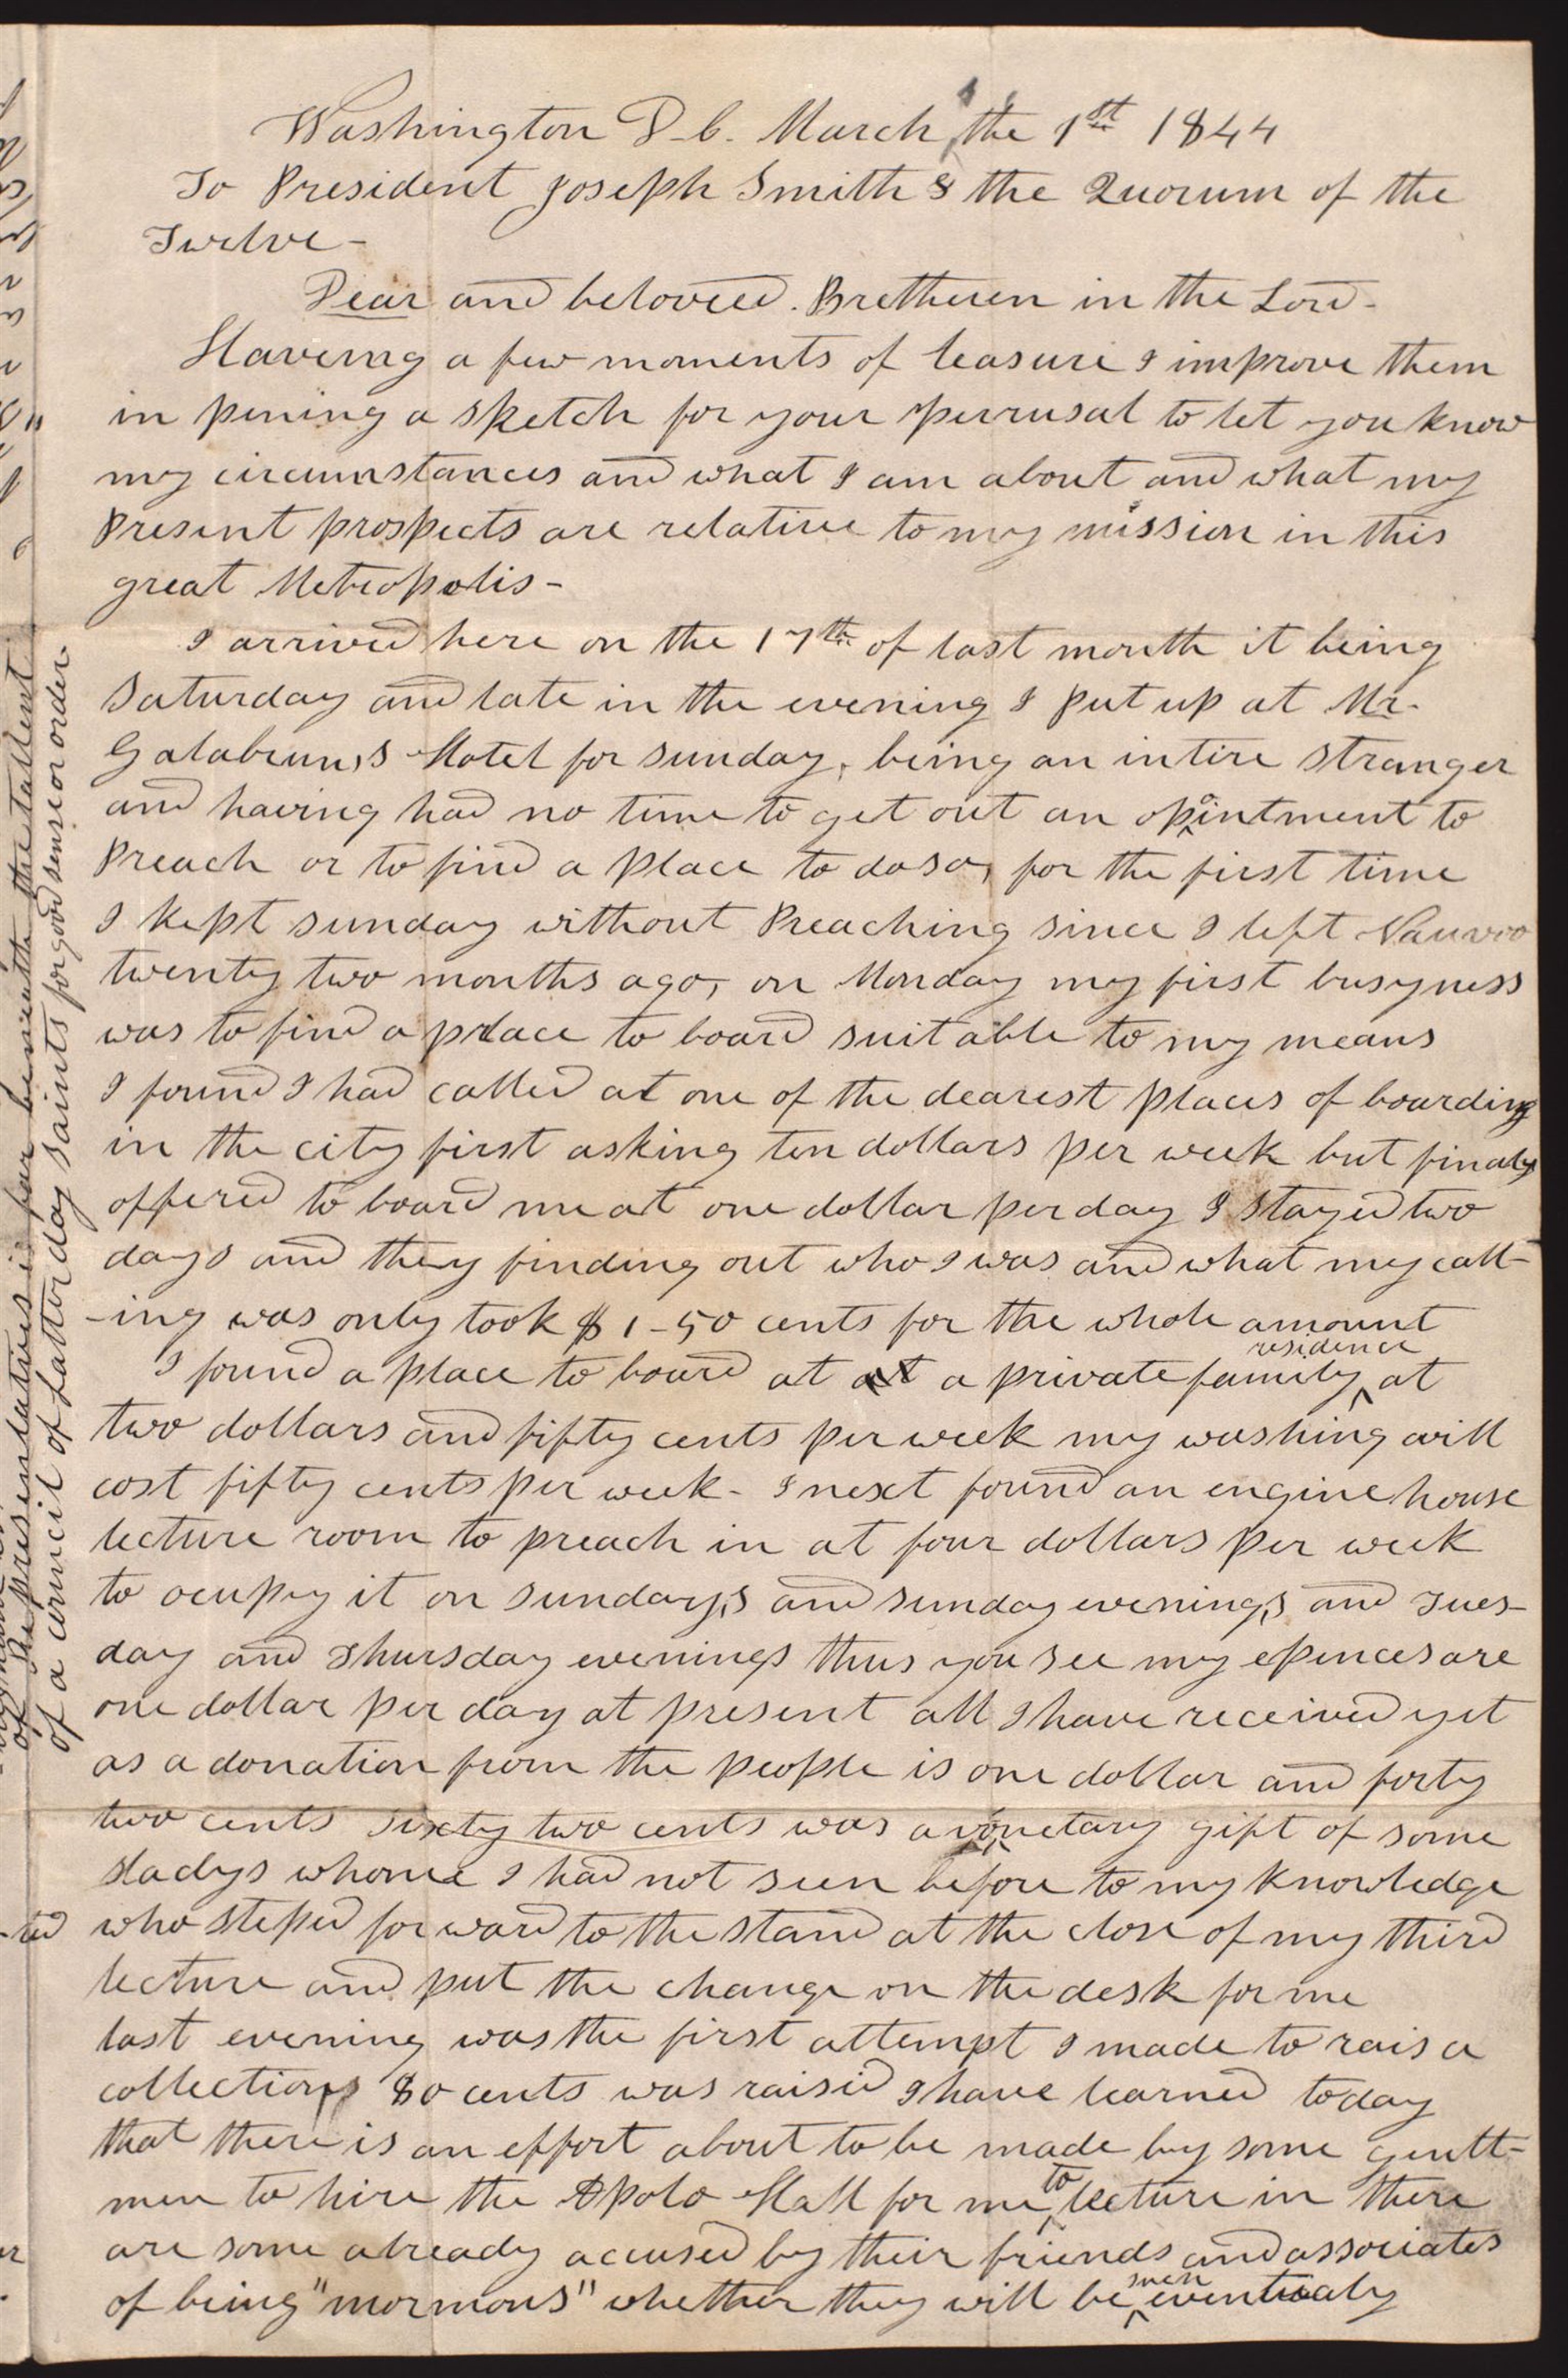 Washington D-C. March, the 1st 1844
To President Joseph Smith & the Quorum of the
Twelve-
Dear and beloved. Bretheren in the Lord-
Haveing a few moments of leasure I improve them
in pening a sketch for your perrusal to let you know
my circumstances and what I am about and what my
Present prospects are relative to my mission in this
great Metropolis-
I arrived here on the 17th of last month it being
Saturday and late in the evening I put up at Mr.
Galabrun,s Hotel for sunday, being an intire stranger
and having had no time to get out an opointment to
Preach or to find a place to do so, for the first time
I kept sunday without Preaching since I left Nauvoo
twenty two months ago, on Monday my first busyness
was to find a place to board suitable to my means
I found I had called at one of the dearest places of boarding
in the city first asking ten dollars per week but finaly
offered to board me at one dollar per day I stayed two
days and they finding out who I was and what my call-
-ing was only took $1-50 cents for the whole amount
I found a place to board at at a private family residence at
two dollars and fifty cents per week my washing will
cost fifty cents per week- I next found an engine house
lecture room to preach in at four dollars per week
to ocupy it on sunday,s and sunday evening,s and Tues-
day and Thursday evenings thus you see my epences are
one dollar per day at present all I have received yet
as a donation from the people is one dollar and forty
two cents sixty two cents was a vonetary gift of some
ladys whome I had not seen before to my knowledge
who steped forward to the stand at the close of my third
lecture and put the change on the desk for me
last evening was the first attempt I made to rais a
collection 80 cents was raised I have learned today
that there is an effort about to be made by some gentl-
men to hire the Apolo Hall for me to lecture in there
are some already accused by their friends and associates
of being "mormons" whether they will be such eventualy
of representatives is far beneath the tallent
of a council of Latter day saints for good sense or order.